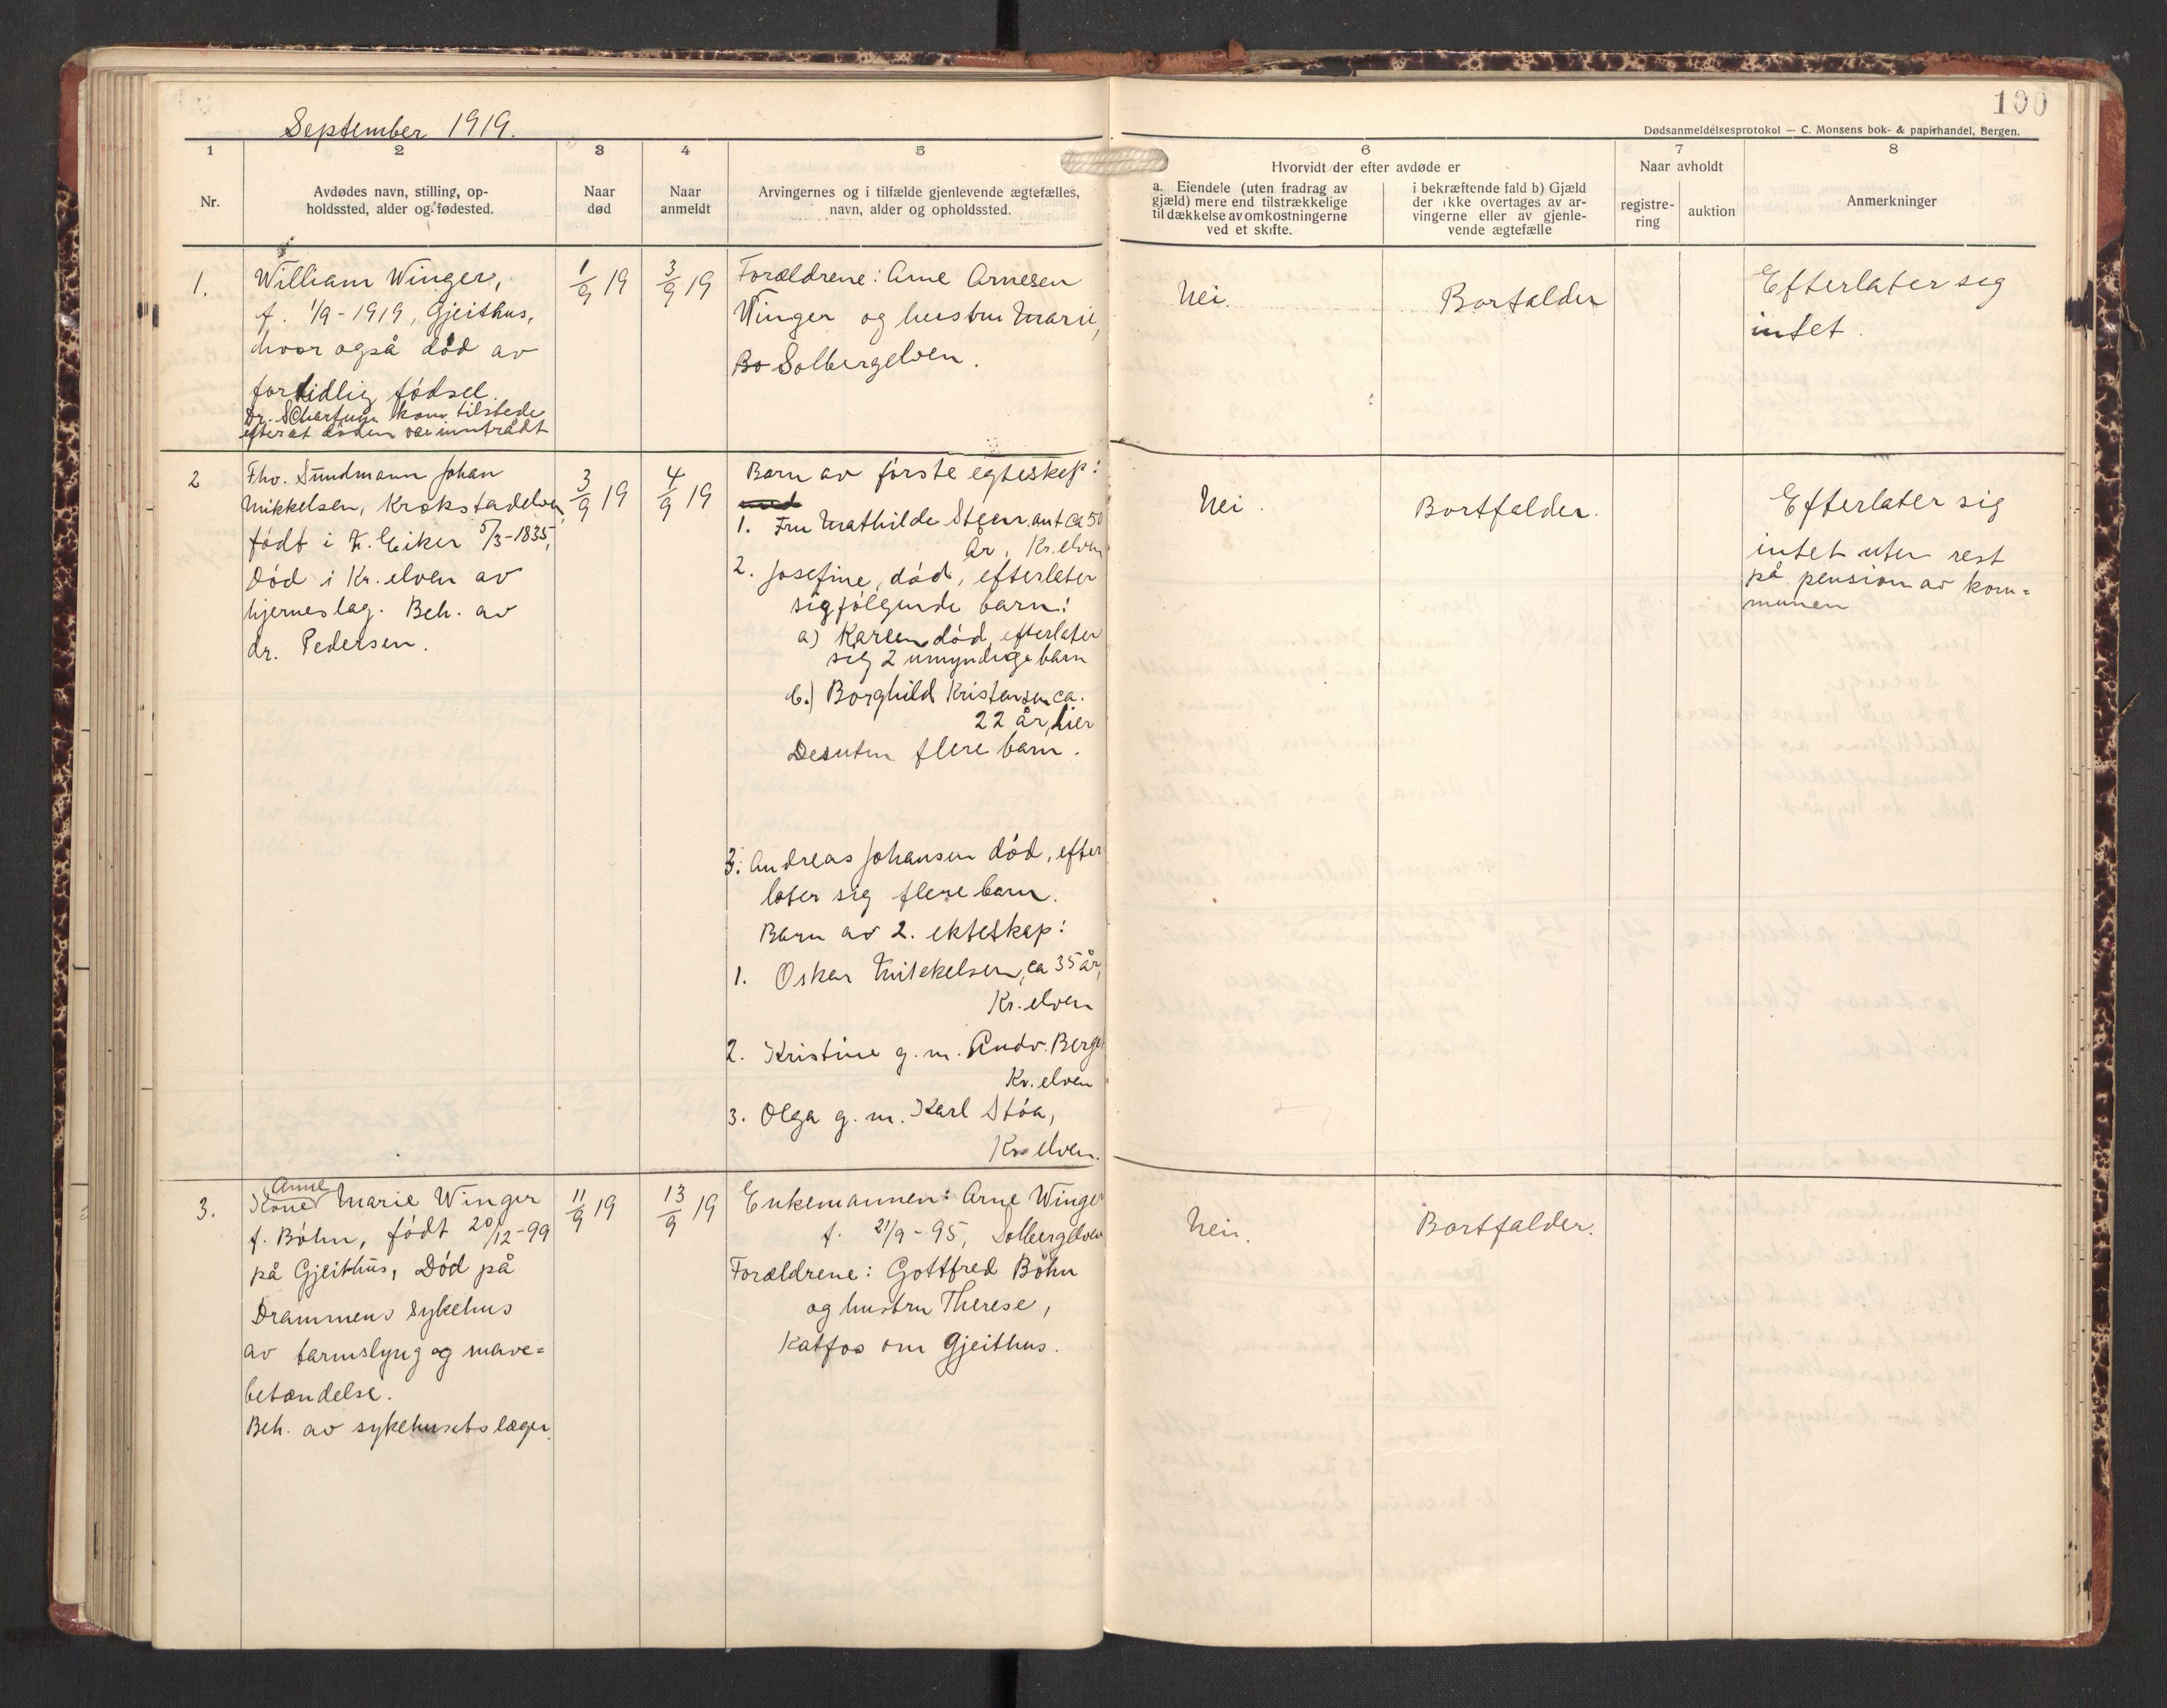 September 1919.
100
Dødsanmeldelsesprotokol — C. Monsens bok- & papirhandel, Bergen.
1
2
3
4
5
6
7
8
Nr.
Avdødes navn, stilling, op-
holdssted, alder og fødested.
Naar
død
Naar
anmeldt
Arvingernes og i tilfælde gjenlevende ægtefælles,
navn, alder og opholdssted.
Hvorvidt der efter avdøde er
a. Eiendele (uten fradrag av
gjæld) mere end tilstrækkelige
til dækkelse av omkostningerne
ved et skifte.
i bekræftende fald b) Gjæld
der ikke overtages av ar-
vingerne eller av gjenle-
vende ægtefælle
Naar avholdt
registre-
ring
auktion
Anmerkninger
1.
William Winger,
f. 1/9-1919, Gjeithus,
hvor også død av
fortidlig fødsel.
Dr. Scharfuijn kom tilstede
efterat døden var inntrådt
1/9 19
3/9 19
Forældrene: Arne Arnesen
Winger og hustru Marie,
Bo Solbergelven.
Nei.
Bortfalder
Efterlater sig
intet.
2
Fhv. Sundmann Johan
Mikkelsen, Krokstadelven,
født i N. Eiker 5/3-1835,
Død i Kr. elven av
hjerneslag. Beh. av
dr. Pedersen.
3/9 19
4/9 19
Barn av første egteskap:
1. Fru Mathilde ca 50
år, Kr. elven
2. Josefine, død, efterlater
sig følgende barn:
a) Karen død, efterlater
sig 2 umyndige barn
b.) Borghild Kristensen ca.
22 år, Lier
Desuten flere barn.
3. Andreas Johansen død, efter
later sig flere barn.
Barn av 2. ekteskap:
1. Oskar Mikkelsen, ca 35 år,
Kr. elven
2. Kristine g. m. Andr. Berge
Kr. elven
3. Olga g. m. Karl Støa,
Kr. elven.
Nei.
Bortfalder.
Efterlater sig
intet uten rest
på pension av kom=
munen
3.
Anne
Kone Marie Winger
f. Bøhn, født 20/12-99
på Gjeithus, Død på
Drammens Sykehus
av tarmslyng og mave=
betændelse.
Beh. av sykehusets læger.
11/9 19
13/9 19
Enkemannen: Arne Winger
f. 21/9-95, Solbergelven
Forældrene: Gottfred Bøhn
og hustru Therese,
Katfos om Gjeithus.
Nei.
Bortfalder.